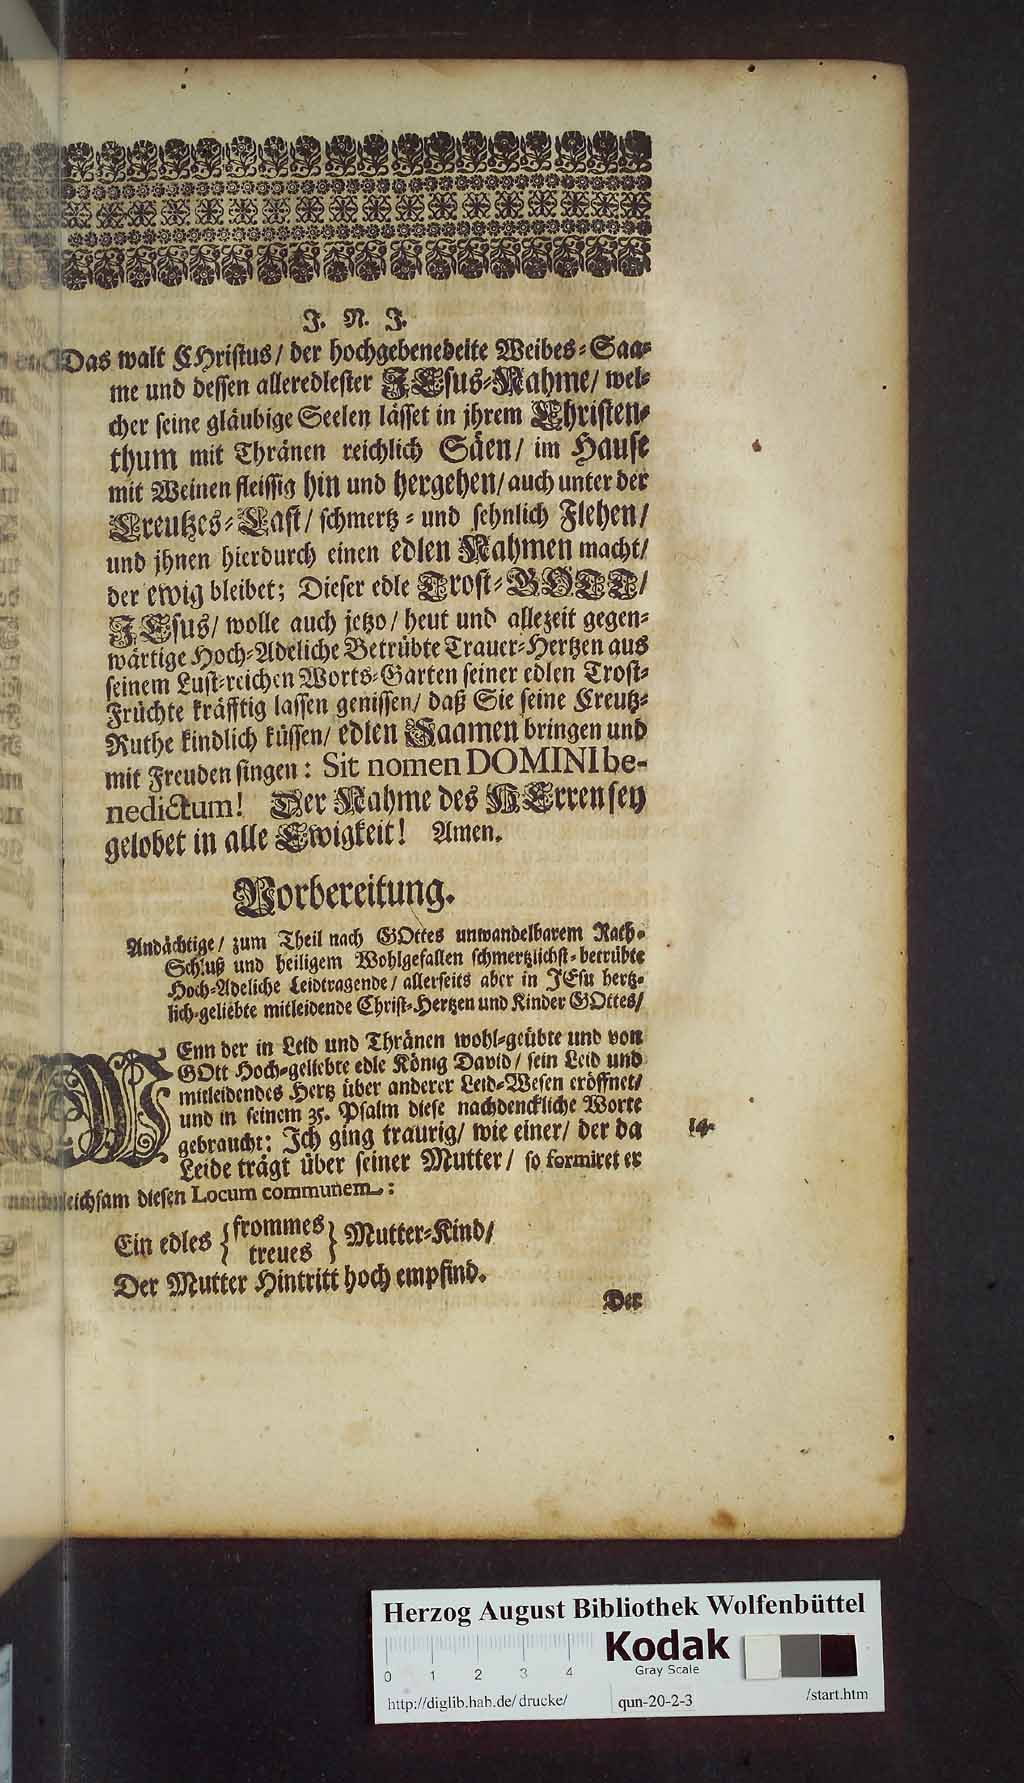 J. N. J.
Das walt CHristus/ der hochgebenedeite Weibes-Saa-
me und dessen alleredlester JEsus-Nahme/ wel-
cher seine gläubige Seelen lässet in jhrem Christen-
thum mit Thränen reichlich Säen/ im Hause
mit Weinen fleissig hin und hergehen/ auch unter der
Creutzes-Last/ schmertz- und sehnlich Flehen/
und jhnen hierdurch einen edlen Nahmen macht/
der ewig bleibet; Dieser edle Trost-GOTT/
JEsus/ wolle auch jetzo/ heut und allezeit gegen-
wärtige Hoch-Adeliche Betrübte Trauer-Hertzen aus
seinem Lust-reichen Worts-Garten seiner edlen Trost-
Früchte kräfftig lassen genissen/ daß Sie seine Creutz-
Ruthe kindlich küssen/ edlen Saamen bringen und
mit Freuden singen: Sit nomen DOMINI be-
nedictum! Der Nahme des HErren sey
gelobet in alle Ewigkeit! Amen.
Vorbereitung.
Andächtige/ zum Theil nach GOttes unwandelbarem Rath-
Schluß und heiligem Wohlgefallen schmertzlichst-betrübte
Hoch-Adeliche Leidtragende/ allerseits aber in JEsu hertz-
lich-geliebte mitleidende Christ-Hertzen und Kinder GOttes/
WEnn der in Leid und Thränen wohl-geübte und von
GOtt Hoch-geliebte edle König David/ sein Leid und
mitleidendes Hertz über anderer Leid-Wesen eröffnet/
und in seinem 35. Psalm diese nachdenckliche Worte
gebraucht: Jch ging traurig/ wie einer/ der da
14.
Leide trägt über seiner Mutter/ so formiret er
gleichsam diesen Locum communem:
Ein edles {frommes treues} Mutter-Kind/
Der Mutter Hintritt hoch empfind.
Der
Herzog August Bibliothek Wolfenbüttel
Kodak
Gray Scale
0 1 2 3 4
http://diglib.hab.de/drucke/ qun-20-2-3 /start.htm